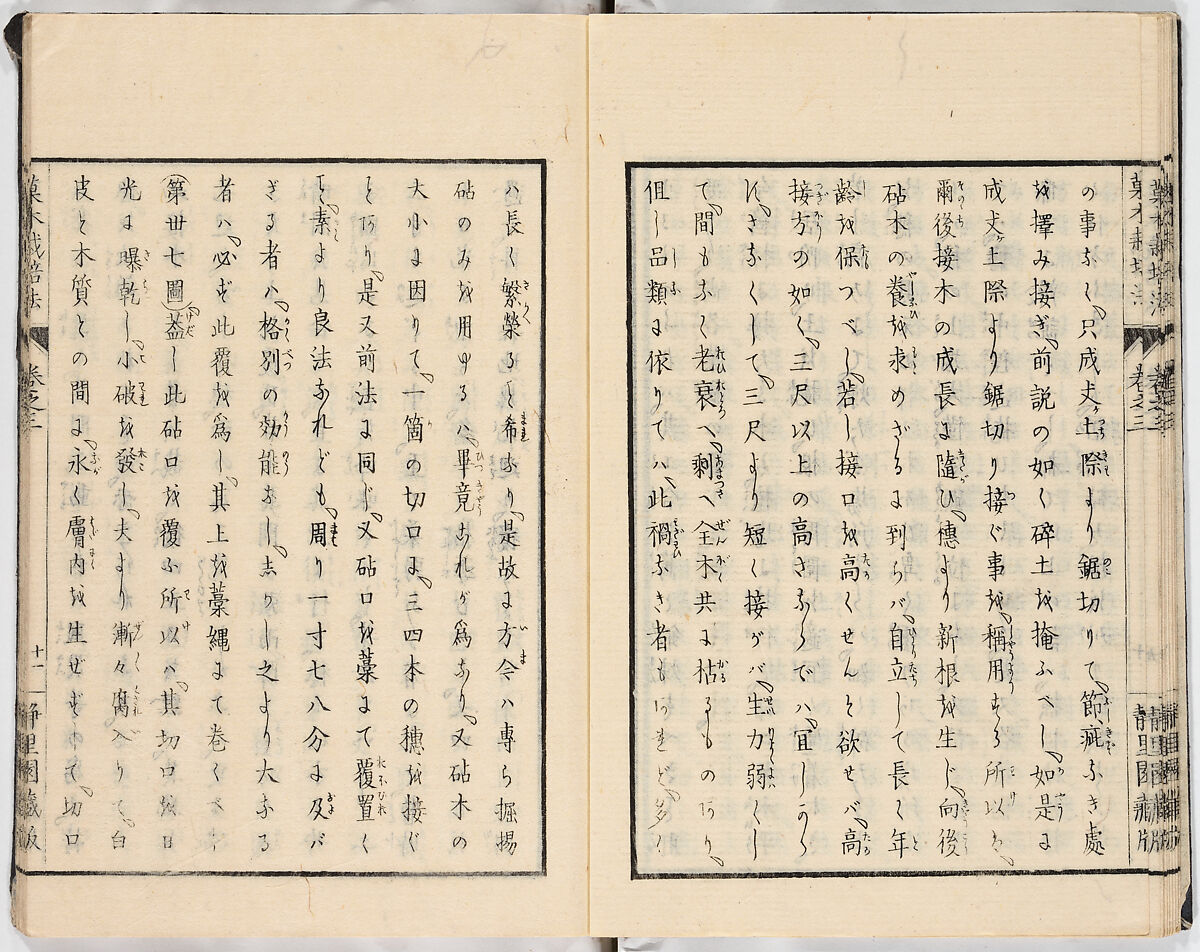 菓木栽培法
巻之三
靜里園藏版
の事なく、只成丈ヶ土際より鋸切りて、節疵なき處
を擇み接ぎ、前説の如く碎土を掩ふべし、如是に
成丈ヶ土際より鋸切り接ぐ事を、稱用する所以ハ、
爾後接木の成長に隨ひ、穗より新根を生じ、向後
砧木の養を求めざるに到らバ、自立して長く年
齡を保つべし、若し接口を高くせんと欲せバ、高
接方の如く、三尺以上の高さならでハ、宜しから
ず、さなくして、三尺より短く接がバ、生力弱くし
て、間もなく老衰へ、剰へ全木共に枯るゝものあり、
但し品類に依りてハ、此禍なき者もあれど、多く
ハ長く繁榮ると希なり、是故に方今ハ專ら掘揚
砧のみを用ゆるハ、畢竟これが爲なり、又砧木の
大小に因りて、一箇の切口に、三四本の穗を接ぐ
とあり、是又前法に同じ、又砧口を藁にて覆置く
と、素より良法なれども、周り一寸七八分に及バ
ざる者ハ、格別の効能なし、しかし之より大なる
者ハ、必ず此覆を爲し、其上を藁縄にて巻くべし
第丗七圖 蓋し此砧口を覆ふ所以ハ、其切口を日
光に曝乾し、小破を發し、夫より漸々腐入りて、白
皮と木質との間に、永く膚内を生ぜず、切口
菓木栽培法
巻之三
十一
靜里園藏版